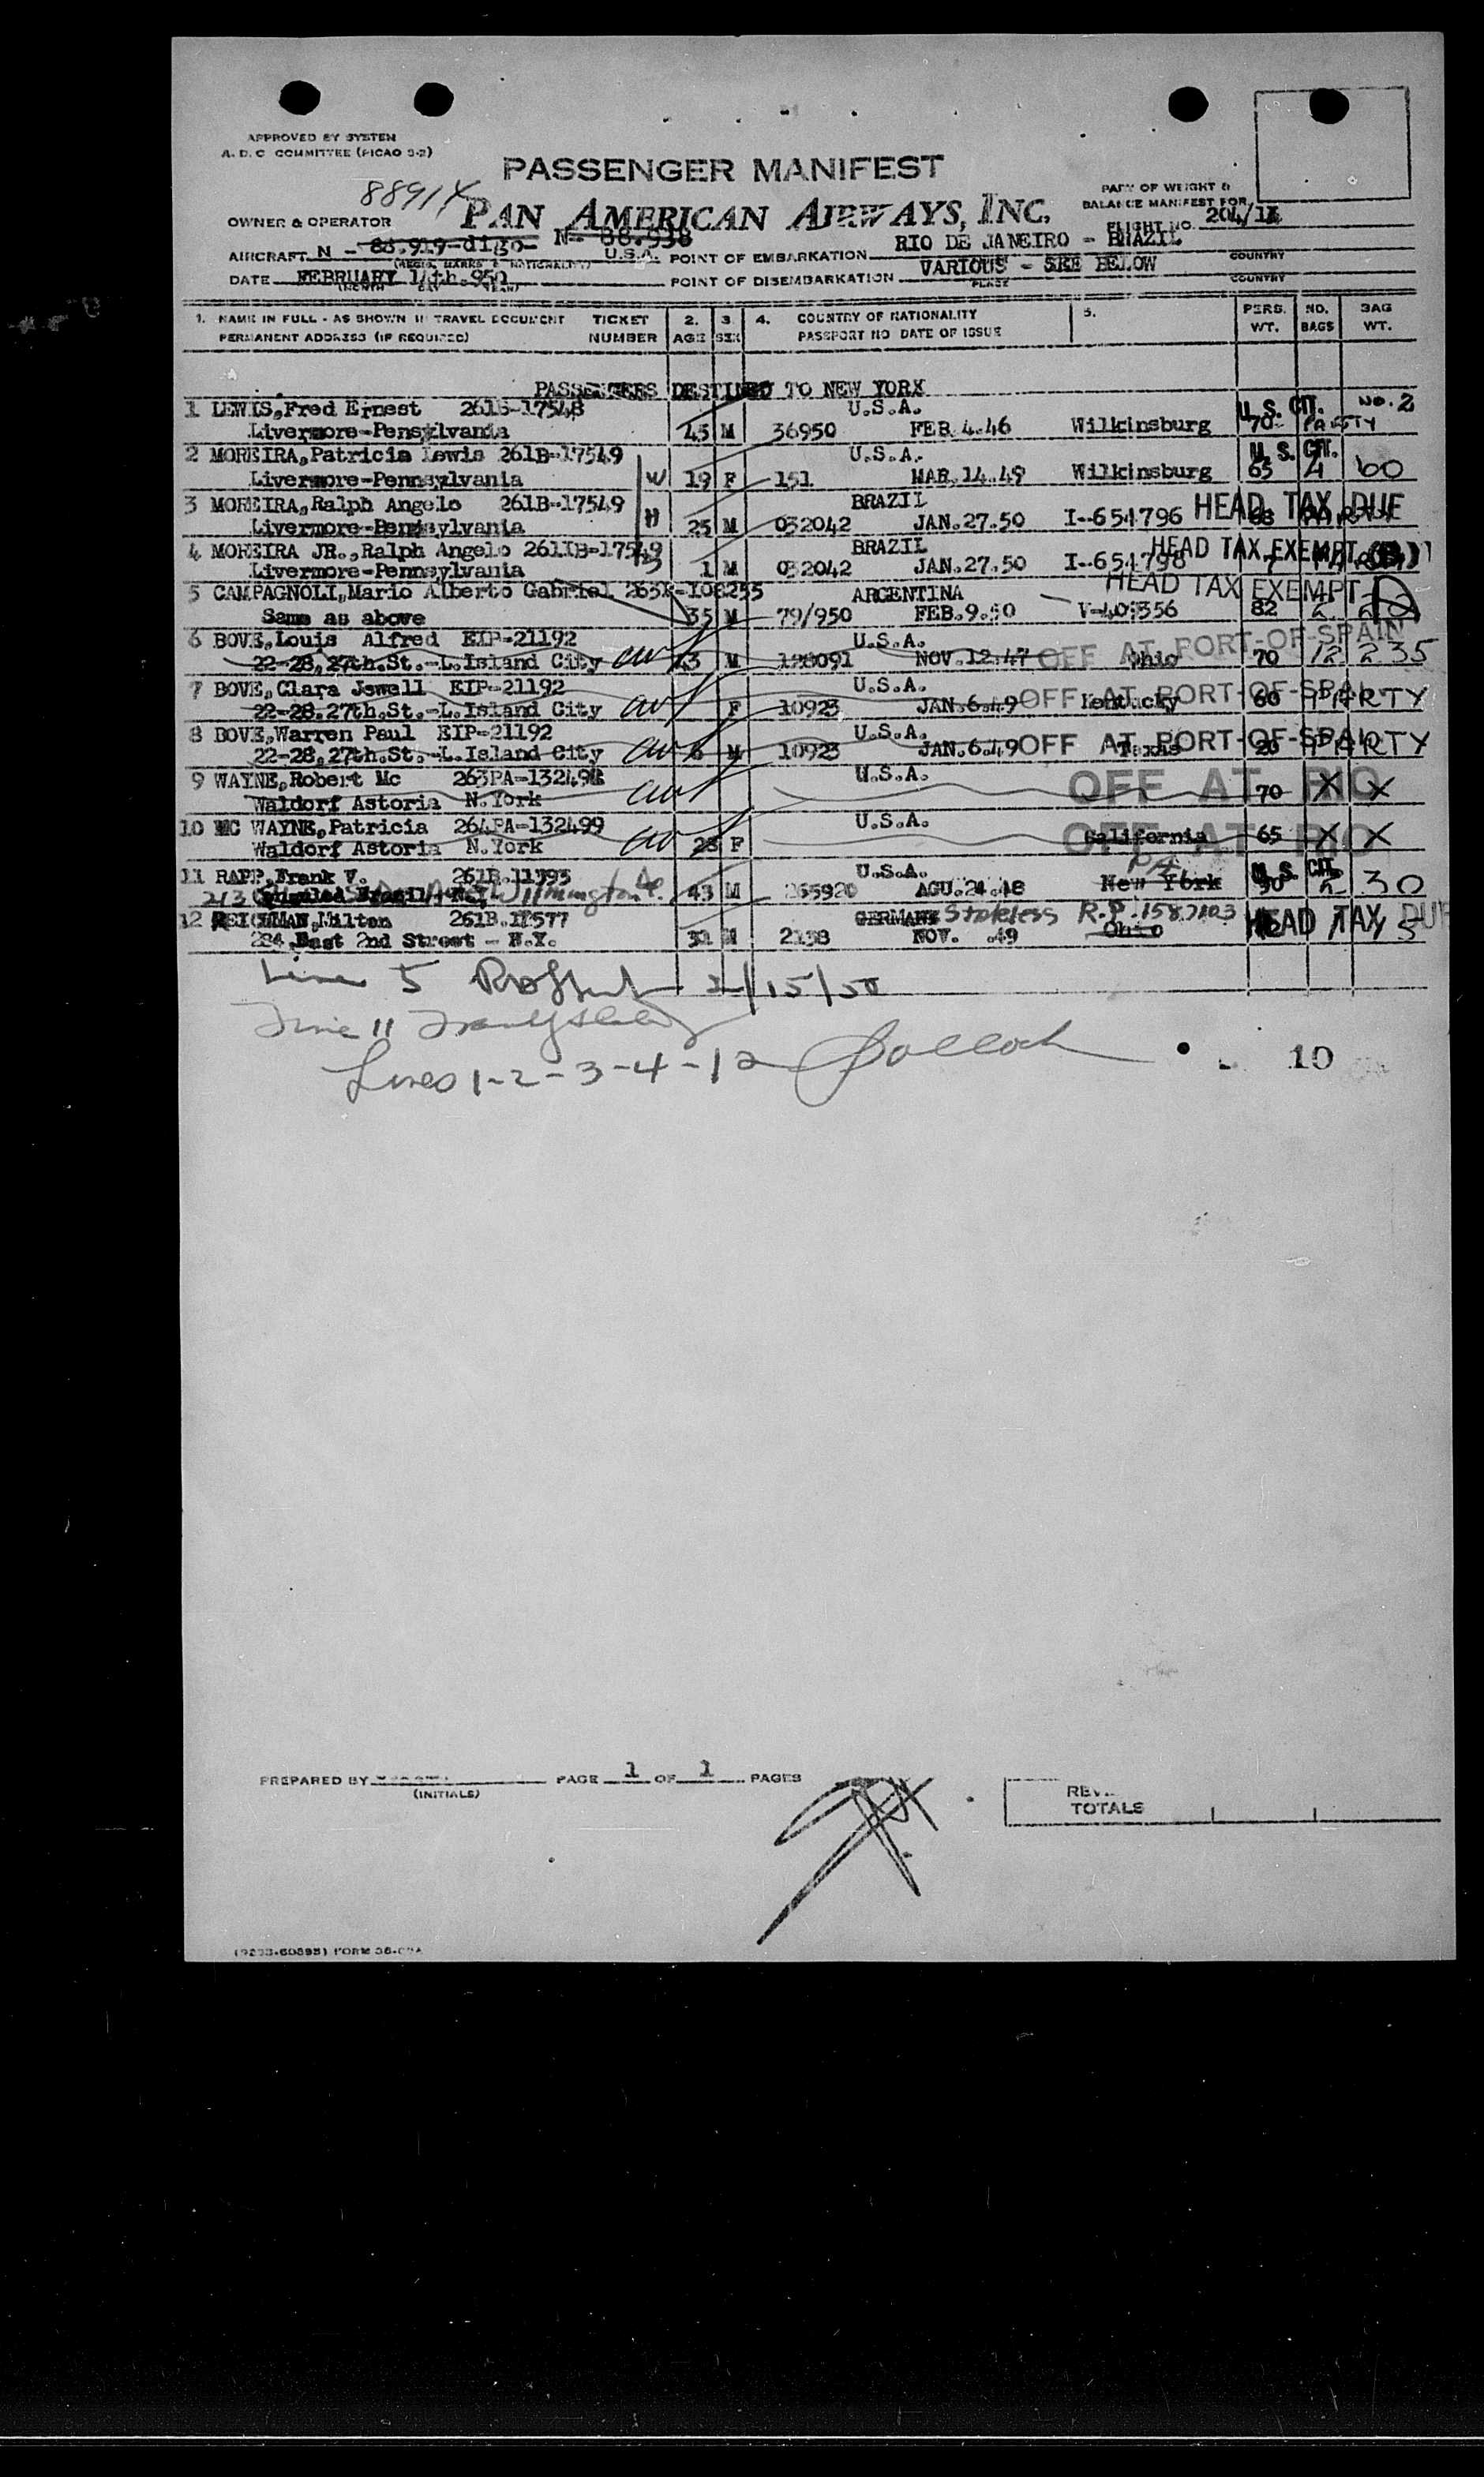 APPROVED BY SYSTEM
A.D.C COMMITTEE (PICAO 3-2)
PASSENGER MANIFEST
PART OF WEIGHT &
BALANCE MANIFEST FOR
88914
OWNER & OPERATOR PAN AMERICAN AIRWAYS, INC. FLIGHT NO. 204/14
AIRCRAFT N - 88.919-digo- N- 88.938 U.S.A. POINT OF EMBARKATION RIO DE JANEIRO - BRAZIL COUNTRY
(REGIS. MARKS & NATIONALITY)
DATE FEBRUARY 14th.950 POINT OF DISEMBARKATION VARIOUS - SEE BELOW COUNTRY
(MONTH DAY YEAR) PLACE
1. NAME IN FULL - AS SHOWN IN TRAVEL DOCUMENT TICKET 2. 3. 4. COUNTRY OF NATIONALITY 5. PERS. NO. BAG
PERMANENT ADDRESS (IF REQUIRED) NUMBER AGE SEX PASSPORT NO DATE OF ISSUE WT. BAGS WT.
PASSENGERS DESTINED TO NEW YORK
1 LEWIS,Fred Ernest 261B-17548 U.S.A. U.S. CIT. No. 2
Livermore-Pensylvania 45 M 36950 FEB.4.46 Wilkinsburg 70 PARTY
2 MOREIRA,Patricia Lewis 261B-17549 U.S.A. U.S. CIT.
Livermore-Pennsylvania W 19 F 151 MAR.14.49 Wilkinsburg 65 4 60
3 MOREIRA,Ralph Angelo 261B-17549 BRAZIL HEAD TAX DUE
Livermore-Pennsylvania H 25 M 032042 JAN.27.50 I-654796 68
4 MOREIRA JR.,Ralph Angelo 261IB-17549 BRAZIL HEAD TAX EXEMPT
Livermore-Pennsylvania 1 M 032042 JAN.27.50 I-654798
5 CAMPAGNOLI,Mario Alberto Gabriel 263R-108255 ARGENTINA HEAD TAX EXEMPT
Same as above 35 M 79/950 FEB.9.50 V-409356 82 2
6 BOVE,Louis Alfred EIP-21192 U.S.A. OFF AT PORT-OF-SPAIN
22-28,27th.St.-L.Island City 43 M 128091 NOV.12.47 Ohio 70 12 235
7 BOVE,Clara Jewell EIP-21192 U.S.A. OFF AT PORT-OF-SPAIN
22-28.27th.St.-L.Island City F 10923 JAN.6.49 Kentucky 60 PARTY
8 BOVE,Warren Paul EIP-21192 U.S.A. OFF AT PORT-OF-SPAIN
22-28.27th.St.-L.Island City 6 M 10923 JAN.6.49 Texas 20 PARTY
9 WAYNE,Robert Mc 263PA-132498 U.S.A. OFF AT RIO
Waldorf Astoria N.York 70 X X
10 MC WAYNE,Patricia 264PA-132499 U.S.A. OFF AT RIO
Waldorf Astoria N.York 28 F California 65 X X
11 RAPP,Frank V. 261B.11393 U.S.A. Pa U.S. CIT.
Wilmington 43 M 265920 AGU.24.48 New York 90 2 30
12 REICHMAN,Milton 261B.11577 GERMANY Stateless R.P. 1587103 HEAD TAX DUE
284,East 2nd Street - N.Y. 31 M 2138 NOV. .49 Ohio
Line 5 2/15/50
Line 11
Lines 1-2-3-4-12
10
PREPARED BY PAGE 1 OF 1 PAGES
(INITIALS)
TOTALS